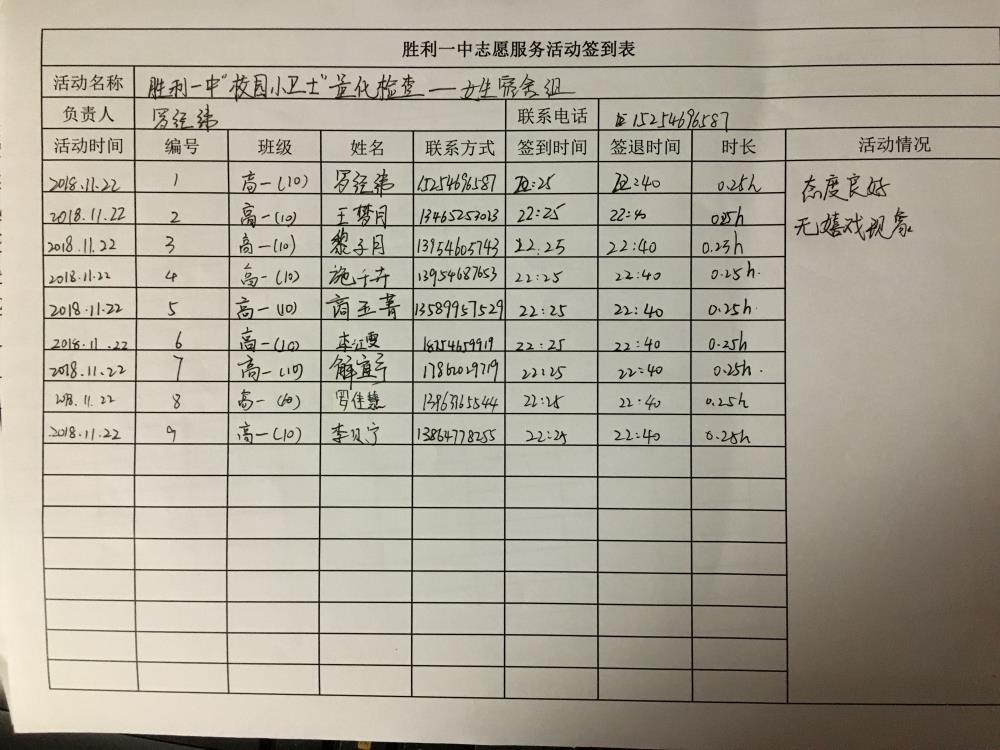 胜利一中志愿服务活动签到表
活动名称 胜利一中"校园小卫士"量化检查—女生宿舍组
负责人 罗经纬 联系电话 15254696587
活动时间 编号 班级 姓名 联系方式 签到时间 签退时间 时长 活动情况
2018.11.22 1 高一(10) 罗经纬 15254696587 22:25 22:40 0.25h 态度良好
2018.11.22 2 高一(10) 王梦月 13465253023 22:25 22:40 0.25h 无嬉戏现象
2018.11.22 3 高一(10) 黎子月 13954605743 22:25 22:40 0.25h
2018.11.22 4 高一(10) 施千卉 13954687653 22:25 22:40 0.25h.
2018.11.22 5 高一(10) 商玉菁 13589957529 22:25 22:40 0.25h
2018.11.22 6 高一(10) 李江雯 18254659919 22:25 22:40 0.25h
2018.11.22 7 高一(10) 解宜宁 17862029719 22:25 22:40 0.25h.
2018.11.22 8 高一(10) 罗佳慧 13963965544 22:25 22:40 0.25h
2018.11.22 9 高一(10) 李贝宁 13864778255 22:25 22:40 0.25h